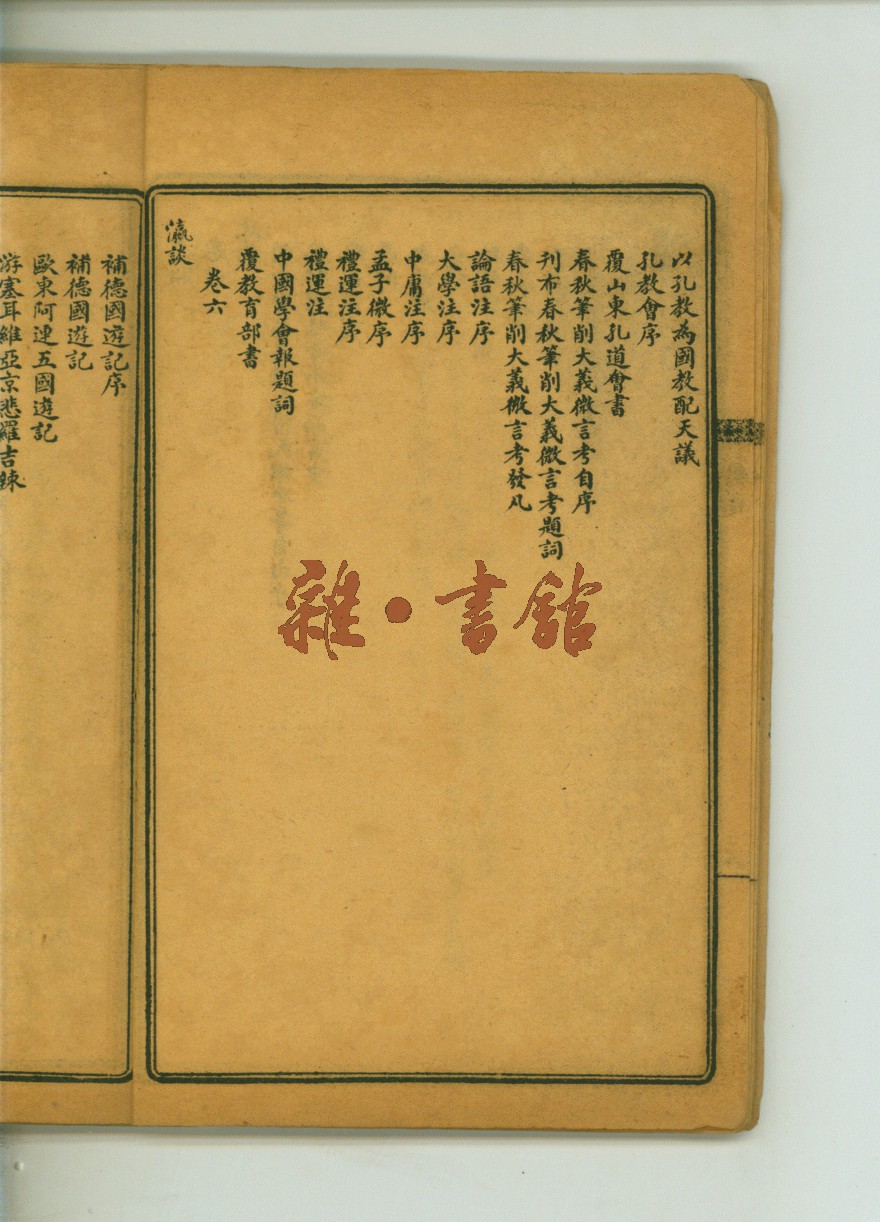 以孔教為國教配天議
孔教會序
覆山東孔道會書
春秋筆削大義微言考自序
刊布春秋筆削大義微言考題詞
春秋筆削大義微言考發凡
論語注序
大學注序
中庸注序
孟子微序
禮運注序
禮運注
中國學會報題詞
覆教育部書
卷六
瀛談
補德國遊記序
補德國遊記
歐東阿連五國遊記
游塞耳維亞京悲羅吉辣
雜·書館